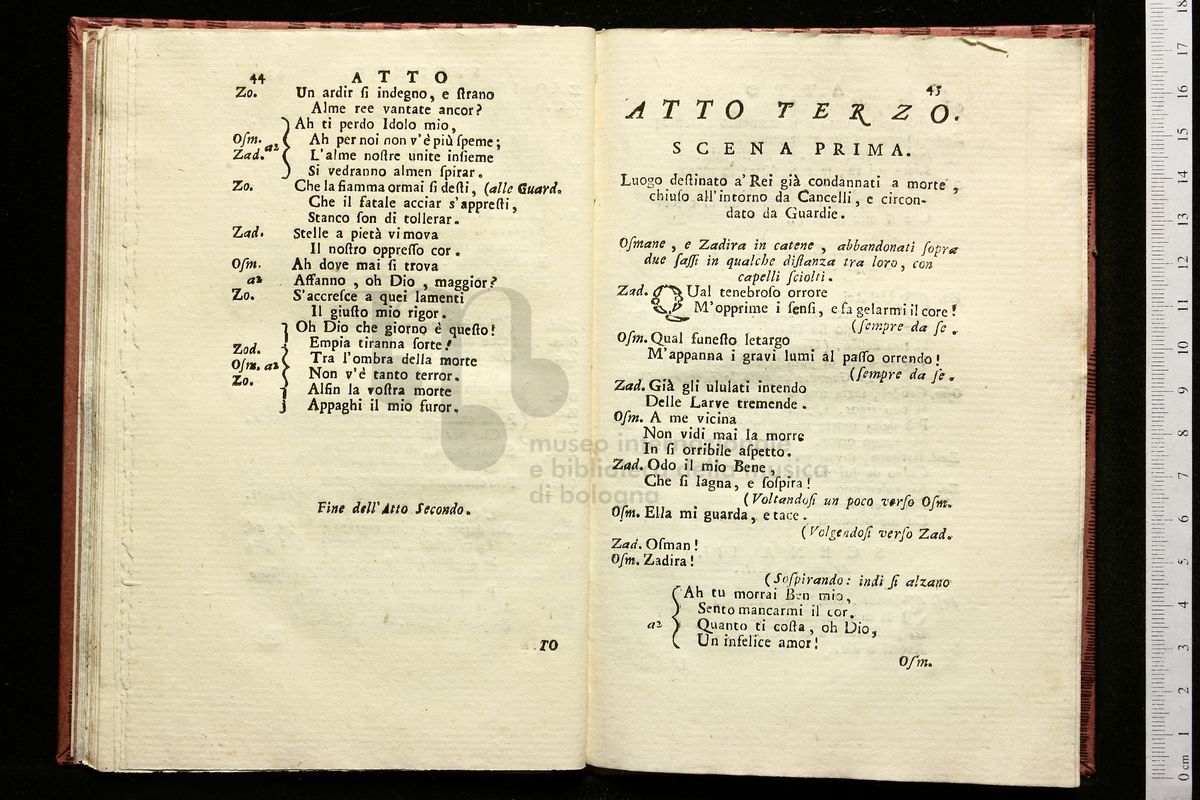 44 ATTO
Zo. Un ardir ſi indegno, e ſtrano
Alme ree vantate ancor?
Ah ti perdo Idolo mio,
Oſm. Ah per noi non v'è più ſpeme;
Zad. a2 L'alme noſtre unite inſieme
Si vedranno almen ſpirar.
Zo. Che la fiamma ormai ſi deſti, (alle Guard.
Che il fatale acciar s'appreſti,
Stanco ſon di tollerar.
Zad. Stelle a pietà vi mova
Il noſtro oppreſſo cor.
Oſm. Ah dove mai ſi trova
a2 Affanno, oh Dio, maggior?
Zo. S'accreſce a quei lamenti
Il giuſto mio rigor.
Oh Dio che giorno è queſto!
Empia tiranna ſorte!
Zod. Tra l'ombra della morte
Oſm. a2 Non v'è tanto terror.
Zo. Alfin la voſtra morte
Appaghi il mio furor.
Fine dell'Atto Secondo.
TO
45
ATTO TERZO.
SCENA PRIMA.
Luogo deſtinato a' Rei già condannati a morte,
chiuſo all'intorno da Cancelli, e circon-
dato da Guardie.
Oſmane, e Zadira in catene, abbandonati ſopra
due ſaſſi in qualche diſtanza tra loro, con
capelli ſciolti.
Zad. QUal tenebroſo orrore
M'opprime i ſenſi, e fa gelarmi il core!
(ſempre da ſe.
Oſm. Qual funeſto letargo
M'appanna i gravi lumi al paſſo orrendo!
(ſempre da ſe.
Zad. Già gli ululati intendo
Delle Larve tremende.
Oſm. A me vicina
Non vidi mai la morte
In ſi orribile aſpetto.
Zad. Odo il mio Bene,
Che ſi lagna, e ſoſpira!
(Voltandoſi un poco verſo Oſm.
Oſm. Ella mi guarda, e tace.
(Volgendoſi verſo Zad.
Zad. Oſman!
Oſm. Zadira!
(Soſpirando: indi ſi alzano
Ah tu morrai Ben mio,
Sento mancarmi il cor.
a2 Quanto ti coſta, oh Dio,
Un infelice amor!
Oſm.
museo internazionale
e biblioteca della musica
di bologna
0 cm 1 2 3 4 5 6 7 8 9 10 11 12 13 14 15 16 17 18